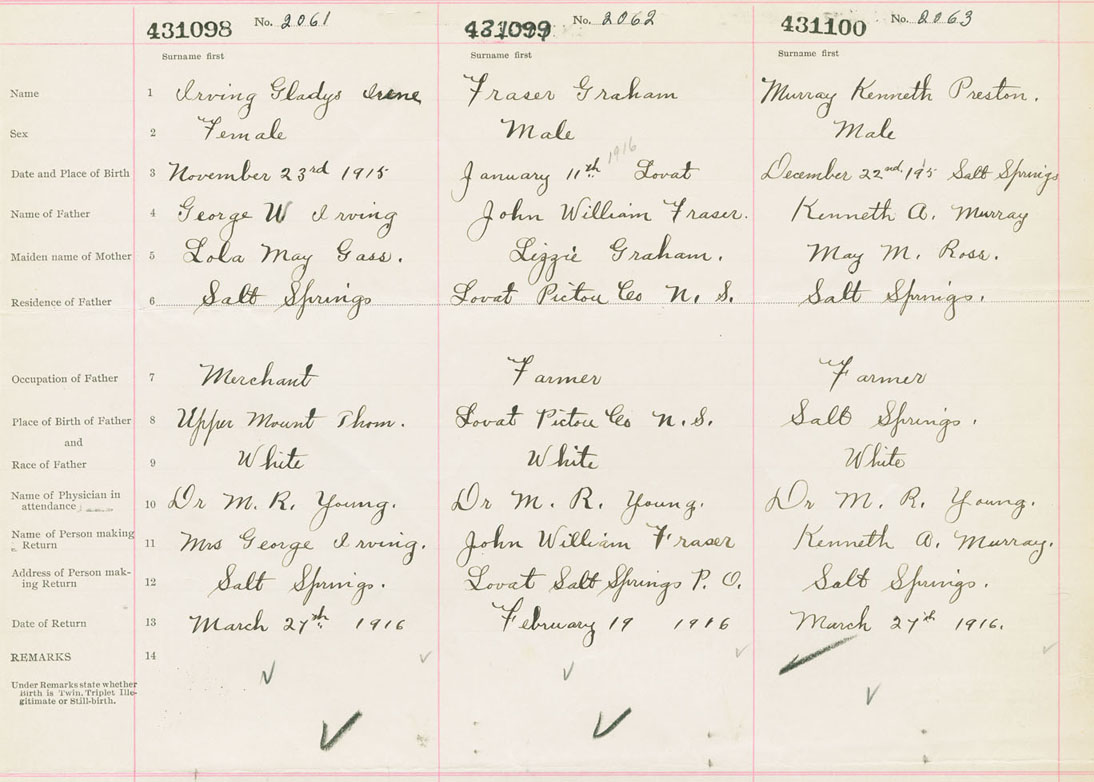 431098 No. 2061 431099 No. 2062 431100 No. 2063
Surname first Surname first Surname first
Name 1 Irving Gladys Irene Fraser Graham Murray Kenneth Preston.
Sex 2 Female Male Male
1916
Date and Place of Birth 3 November 23rd 1915 January 11th Lovat December 22nd 195 Salt Springs
Name of Father 4 George W Irving John William Fraser. Kenneth A. Murray
Maiden name of Mother 5 Lola May Gass. Lizzie Graham. May M. Ross.
Residence of Father 6 Salt Springs Lovat Pictou Co N. S. Salt Springs.
Occupation of Father 7 Merchant Farmer Farmer
Place of Birth of Father 8 Upper Mount Thom. Lovat Pictou Co N. S. Salt Springs.
and
Race of Father 9 White White White
Name of Physician in
attendance 10 Dr M. R. Young. Dr M. R. Young. Dr M. R. Young.
Name of Person making
Return 11 Mrs George Irving. John William Fraser Kenneth A. Murray.
Address of Person mak-
ing Return 12 Salt Springs. Lovat Salt Springs P. O. Salt Springs.
Date of Return 13 March 27th 1916 February 19 1916 March 27th 1916.
REMARKS 14
Under Remarks state whether
Birth is Twin, Triplet Ille-
gitimate or Still-birth.